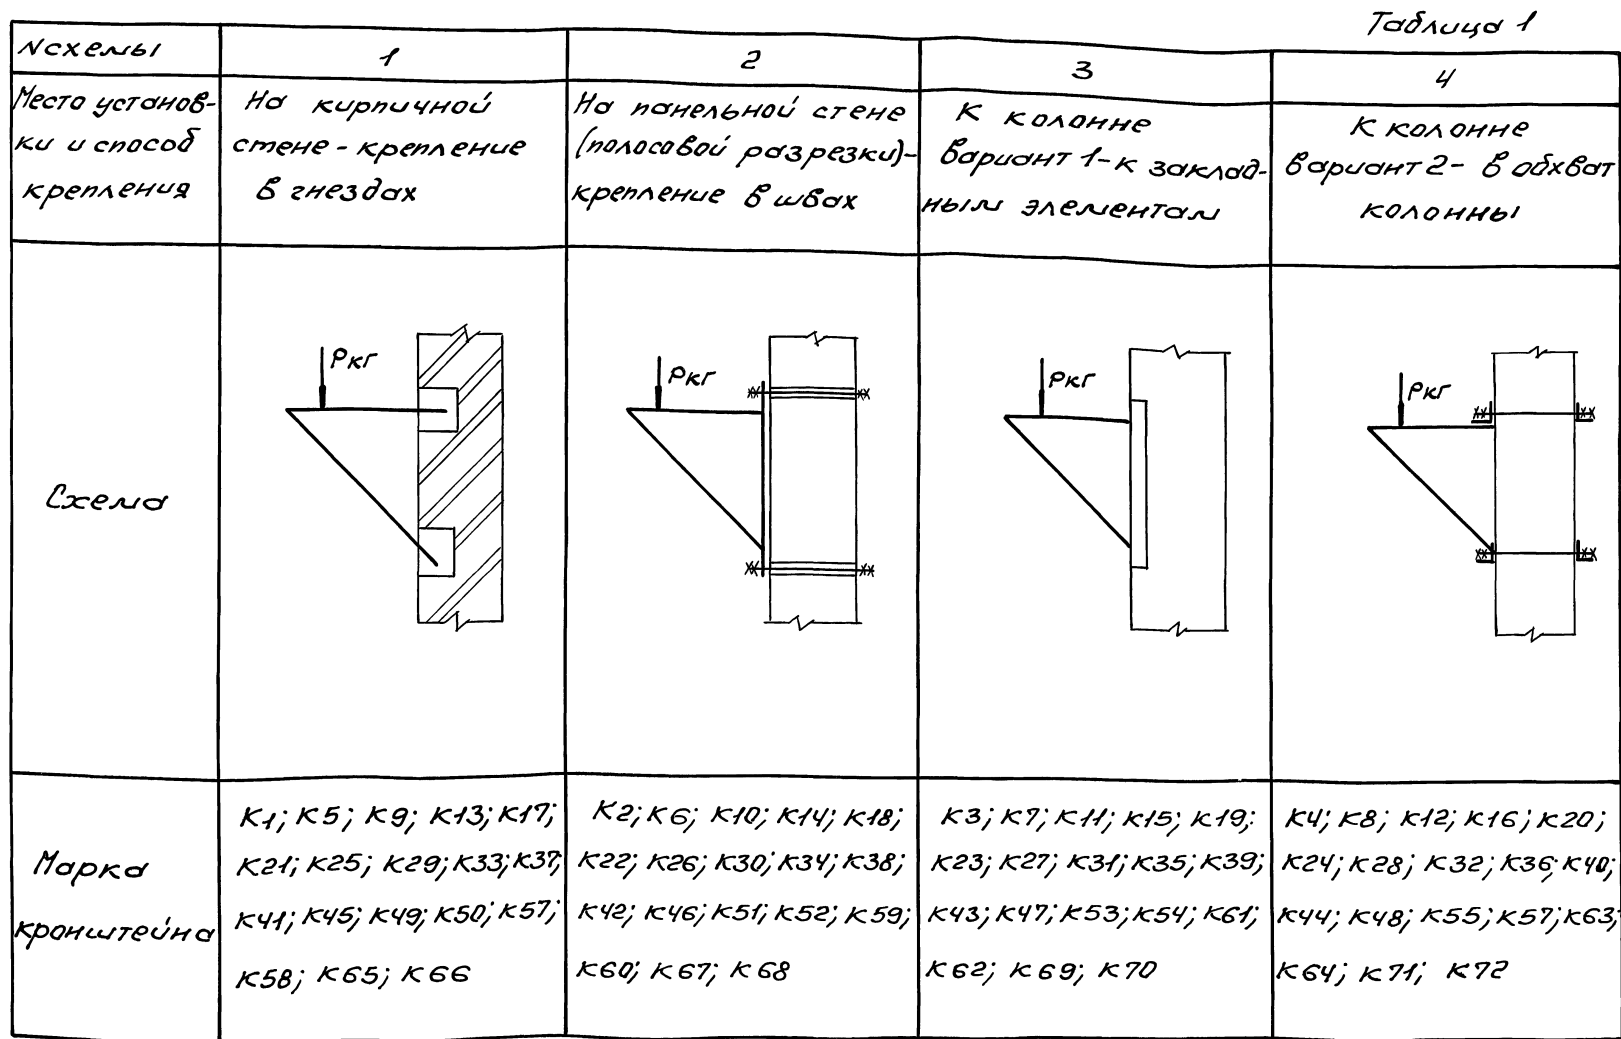 Таблица 1
Nсхемы
1
2
3
4
Место установ-
ки и способ
крепления
На кирпичной
стене - крепление
в гнездах
На панельной стене
(полосовой разрезки)-
крепление в швах
К колонне
вариант 1-к заклад-
ным элементам
К колонне
вариант 2- в обхват
колонны
Схема
Ркг
Ркг
Ркг
Ркг
Марка
кронштейна
К1; К5; К9; К13; К17;
К21; К25; К29; К33; К37;
К41; К45; К49; К50; К57;
К58; К65; К66
К2; К6; К10; К14; К18;
К22; К26; К30; К34; К38;
К42; К46; К51; К52; К59;
К60; К67; К68
К3; К7; К11; К15; К19;
К23; К27; К31; К35; К39;
К43; К47; К53; К54; К61;
К62; К69; К70
К4; К8; К12; К16; К20;
К24; К28; К32; К36; К40;
К44; К48; К55; К57; К63;
К64; К71; К72